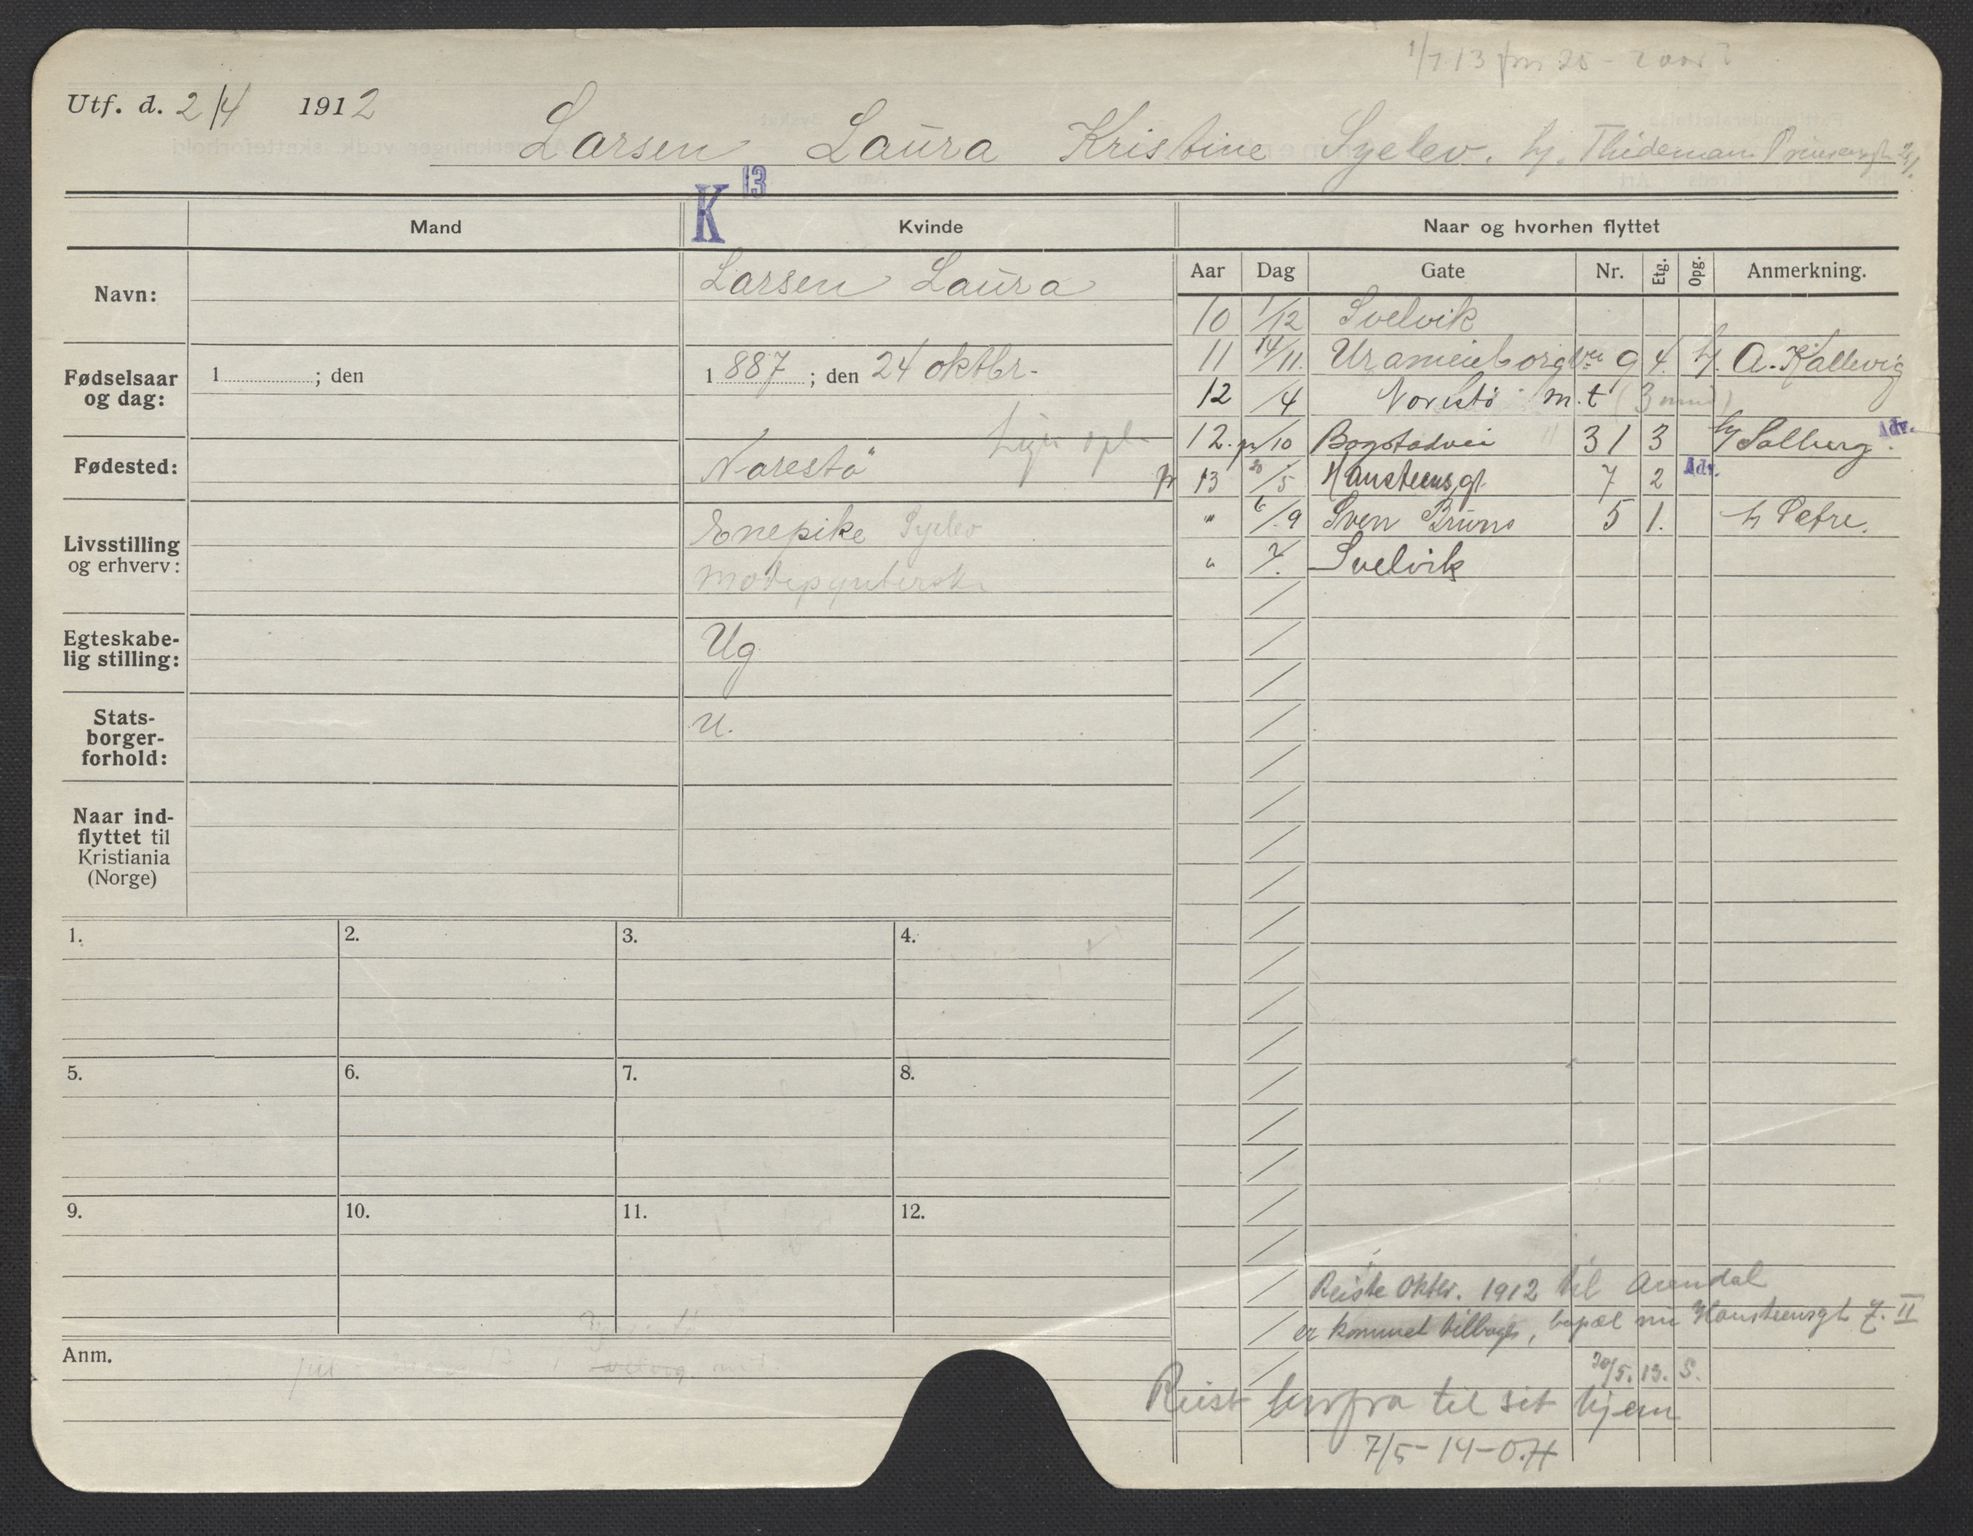 1/7 13
Utf. d. 2/4 1912
Larsen Laura Kristine Syelev. hj. Thideman Prinsensgt
K 13
Mand Kvinde Naar og hvorhen flyttet
Aar Dag Gate Nr. Etg. Opg. Anmerkning.
Navn: Larsen Laura
10 1/12 Svelvik
11 14/11. Uranienborgvei 9 4. hj. A. Kallevig
Fødselsaar og dag: 1 ; den 1887 ; den 24 oktbr.
12 /4 Narestø m.t (3 mnd)
12. 10 Bogstadvei 31 3 hj Solberg. Adv.
Fødested: Narestø
13 20/5 Hansteensgt. 7 2 Adv.
" 6/9 Sven Bruns 5 1. h Petre.
Livsstilling og erhverv: Enepike Syelev
" 7. Svelvik
Egteskabe-
lig stilling: Ug
Stats-
borger-
forhold: u.
Naar ind-
flyttet til
Kristiania
(Norge)
1. 2. 3. 4.
5. 6. 7. 8.
9. 10. 11. 12.
Reiste oktbr. 1912 til Arendal
er kommet tilbage, bopæl nu Hansteensgt 7. II
20/5. 13. S.
Anm.
Reist herfra til sit hjem
7/5-14-O.H